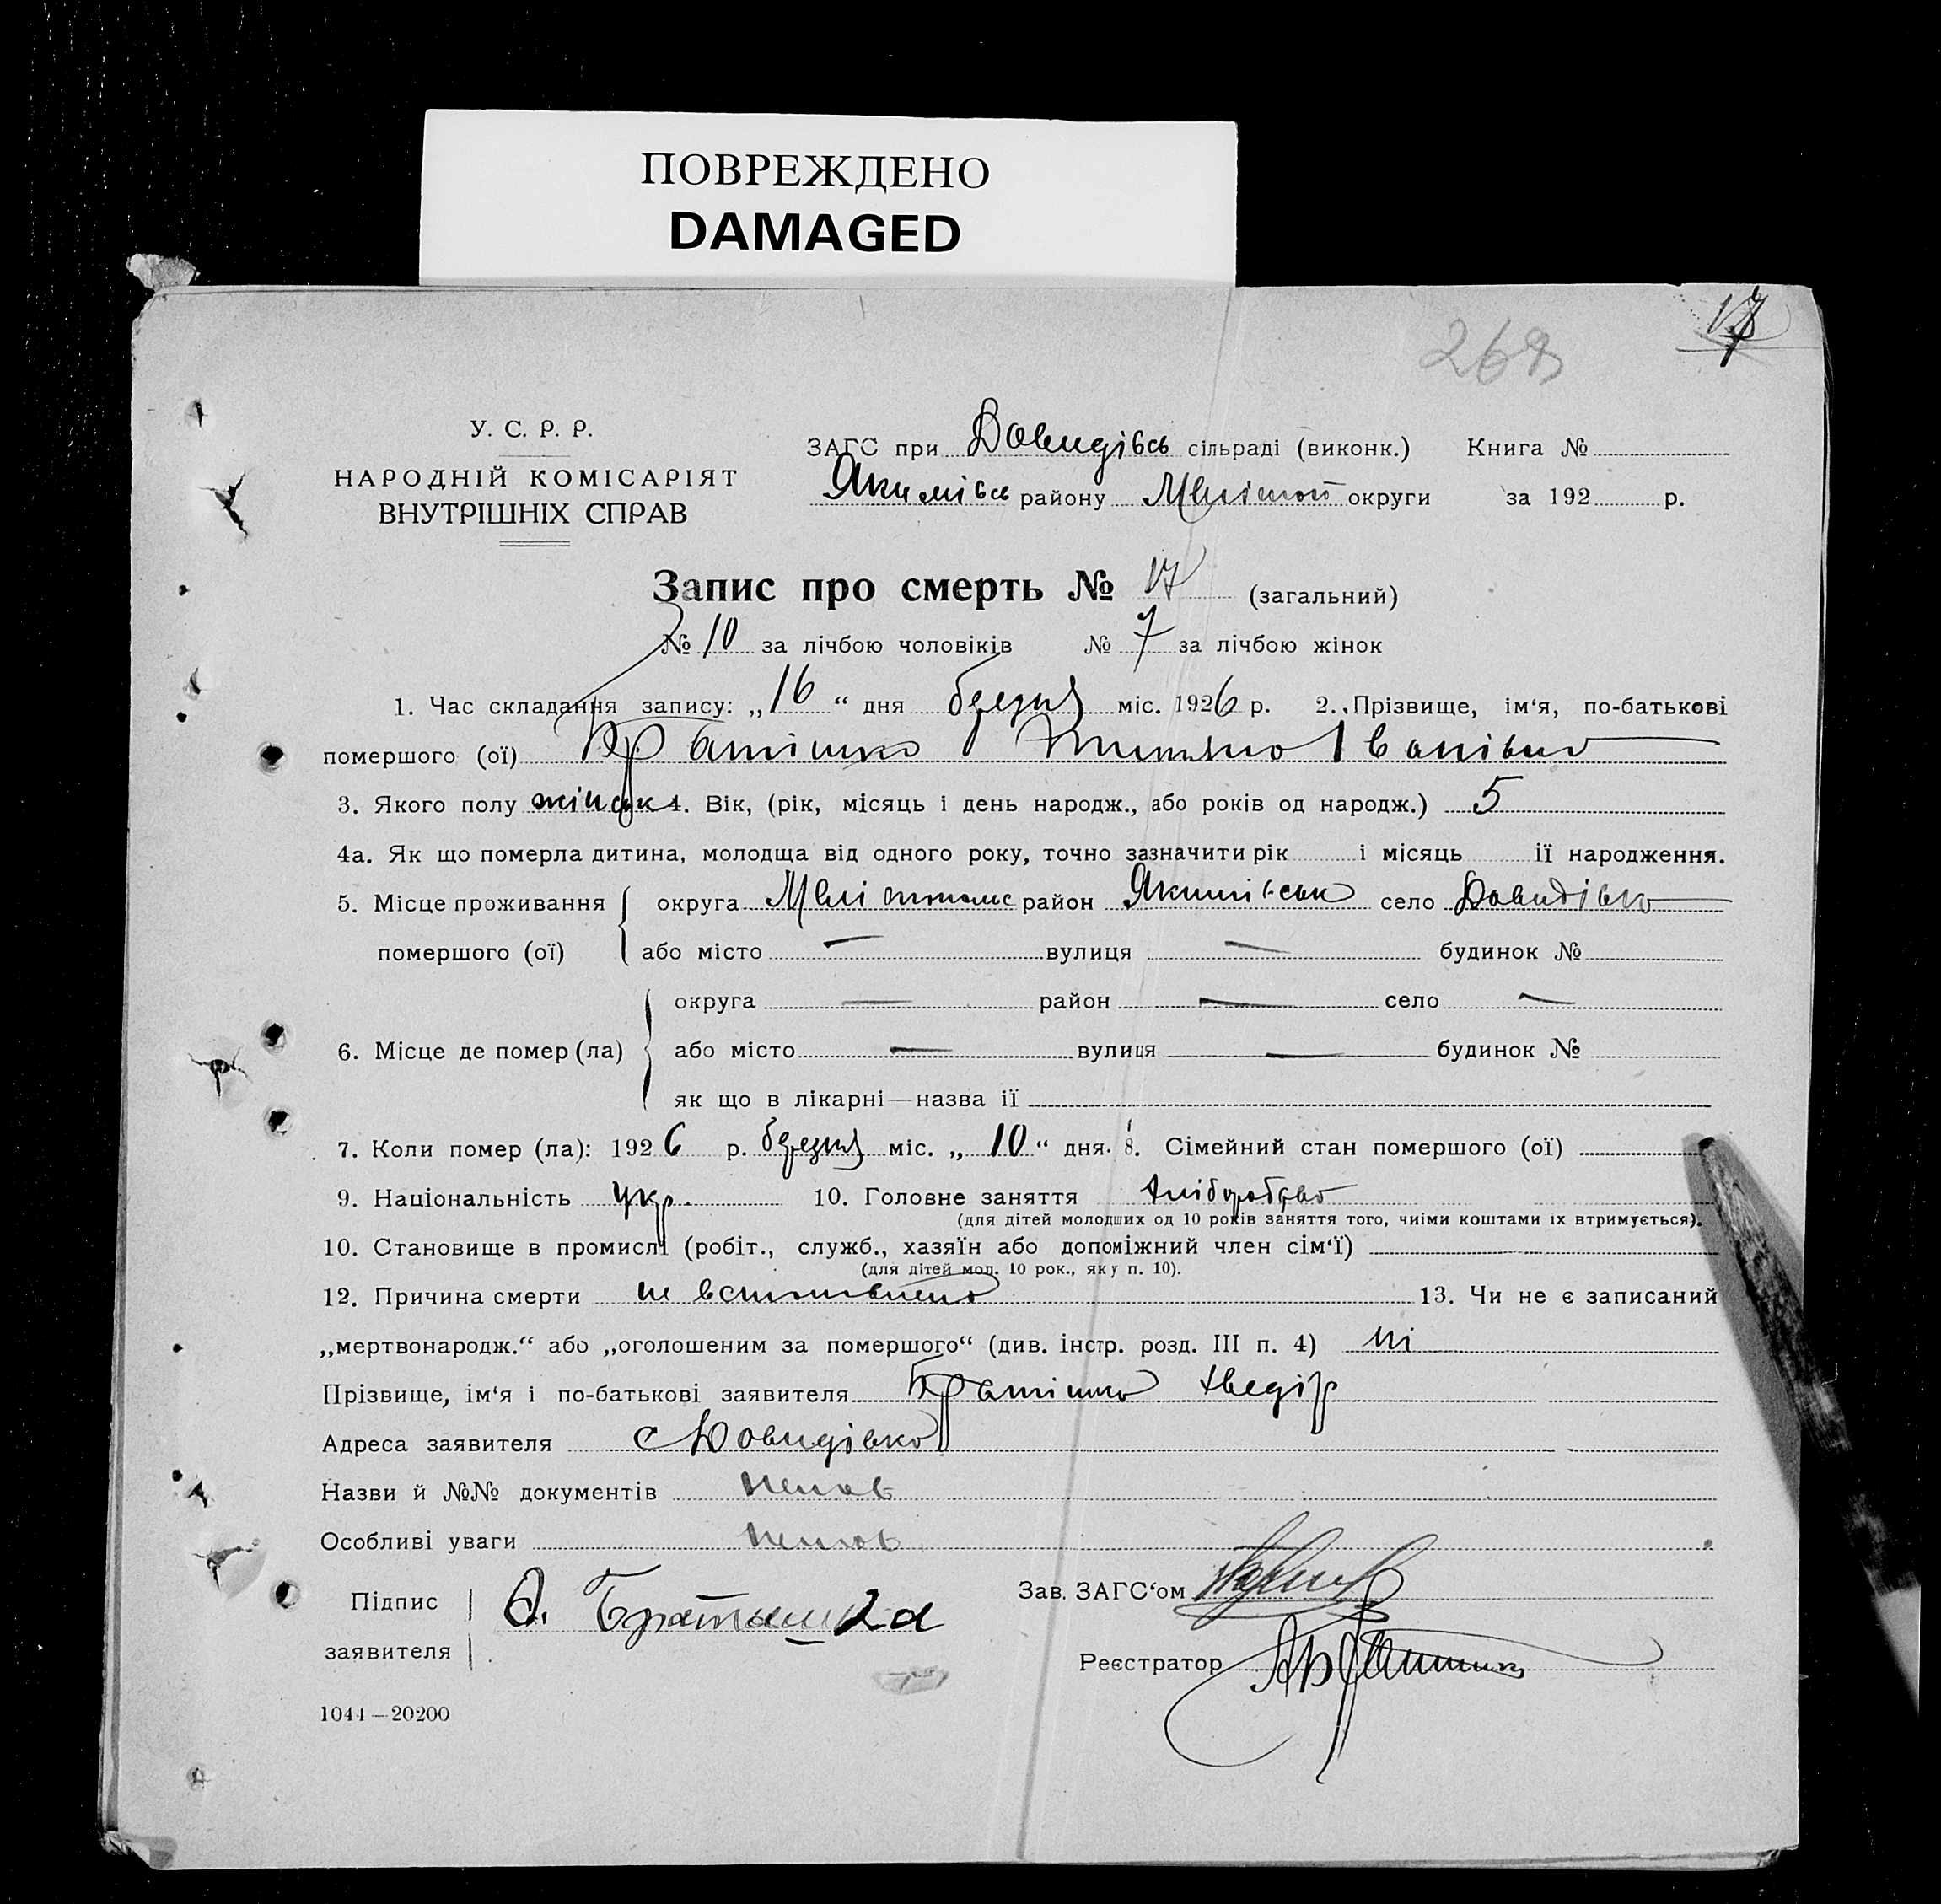 ПОВРЕЖДЕНО
DAMAGED
268 17
У. С. Р. Р.
НАРОДНІЙ КОМІСАРІЯТ
ВНУТРІШНІХ СПРАВ
ЗАГС при Довидівсь сільраді (виконк.) Книга №
Якимівсь району округи за 192 р.
Запис про смерть № 17 (загальний)
№ 10 за лічбою чоловіків № 7 за лічбою жінок
1. Час складання запису: „16“ дня березня міс. 1926 р. 2. Прізвище, ім‘я, по-батькові
помершого (ої) Братішко Іванівна
3. Якого полу жіноцьк 4. Вік, (рік, місяць і день народж., або років од народж.) 5
4а. Як що померла дитина, молодща від одного року, точно зазначити рік і місяць її народження.
5. Місце проживання округа Мелітопольс район Якимівськ село Довидівка
помершого (ої) або місто — вулиця — будинок №
округа — район — село —
6. Місце де помер (ла) або місто — вулиця — будинок №
як що в лікарні—назва її
7. Коли помер (ла): 1926 р. березня міс. „10“ дня. 8. Сімейний стан помершого (ої)
9. Національність укр. 10. Головне заняття хліборобство
(для дітей молодших од 10 років заняття того, чиїми коштами їх втримується).
10. Становище в промислі (робіт., служб., хазяїн або допоміжний член сім‘ї)
(для дітей мол. 10 рок., як у п. 10).
12. Причина смерти не встановлено 13. Чи не є записаний
„мертвонародж.“ або „оголошеним за помершого“ (див. інстр. розд. III п. 4) ні
Прізвище, ім‘я і по-батькові заявителя Братішко Хведір
Адреса заявителя с Довидівка
Назви й №№ документів немає
Особливі уваги немає
Підпис
заявителя
Братишка
Зав. ЗАГС‘ом
Реєстратор
1044—20200